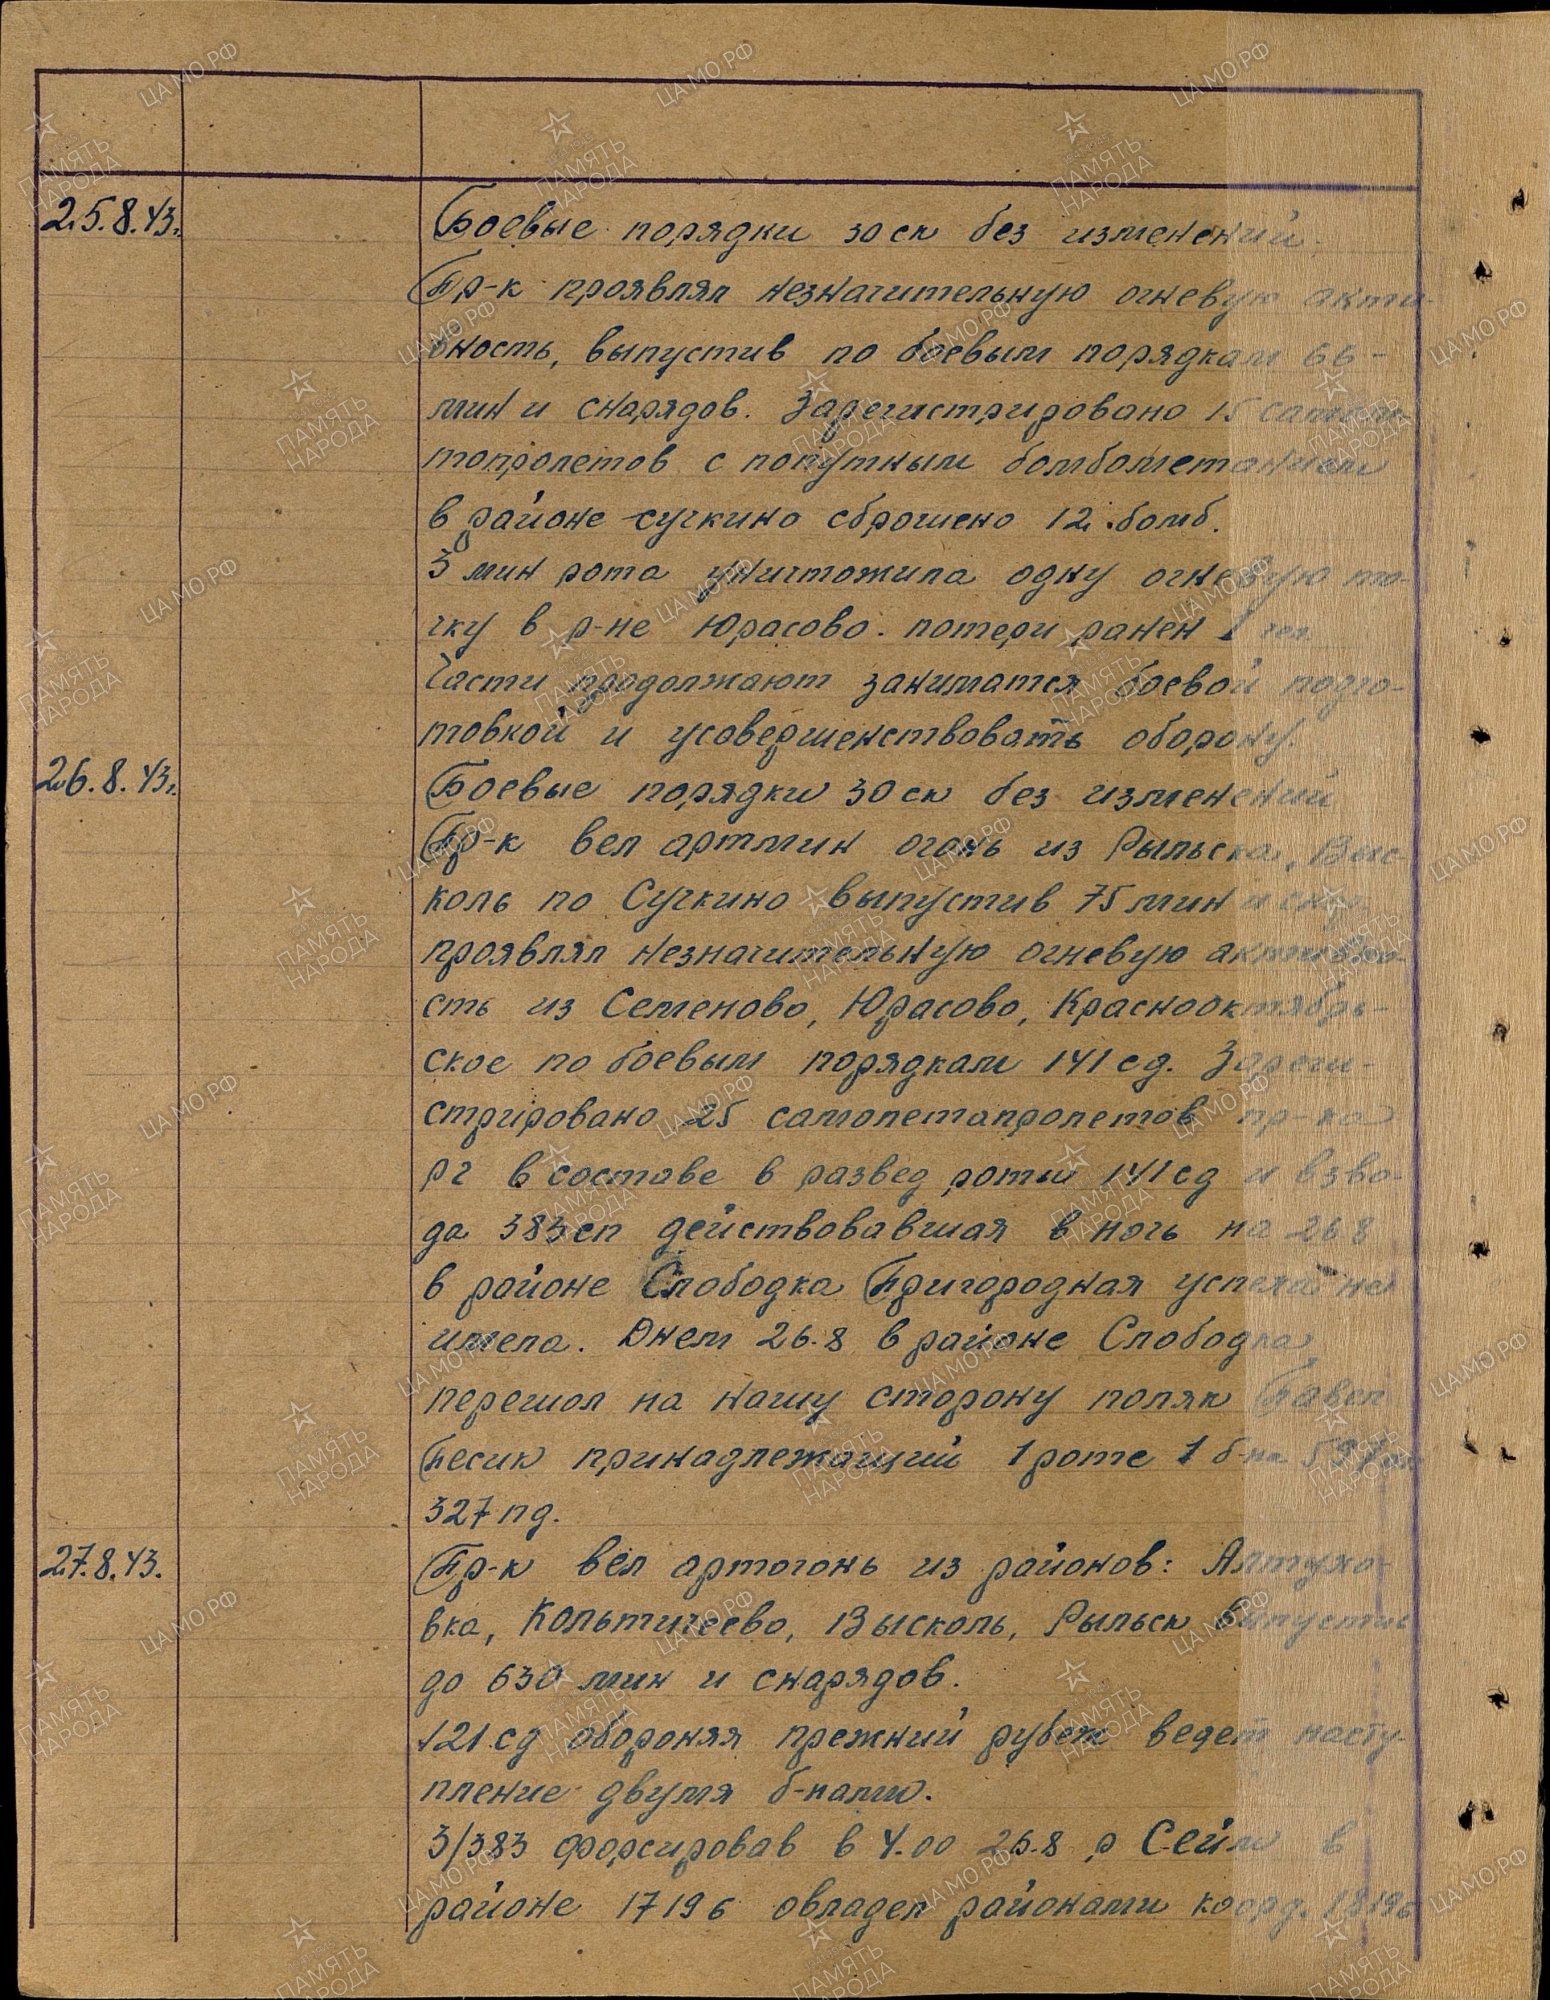 25.8.43г. Боевые порядки 30 ск без изменений.
Пр-к проявлял незначительную огневую акти-
вность, выпустив по боевым порядкам 66-
мин и снарядов. Зарегистрировано 15
топролетов с попутным бомбометанием
в районе Сучкино сброшено 12 бомб.
3 мин рота уничтожила одну огневую то-
чку в р-не Юрасово. потери ранен 1 чел.
Части продолжают заниматся боевой подго-
товкой и усовершенствовать оборону.
26.8.43г. Боевые порядки 30 ск без изменений
Пр-к вел артмин огонь из Рыльска, Выс-
коль по Сучкино выпустив 75 мин и
проявлял незначительную огневую активно-
сть из Семеново, Юрасово, Краснооктябрь-
ское по боевым порядкам 141 сд. Зареги-
стрировано 25 самолетапролетов пр-ка
РГ в составе в развед роты 141 сд и взво-
да 383 сп действовавшая в ночь на 26 8
в районе Слободка Пригородная успеха не
имела. Днем 26.8 в районе Слободка
перешол на нашу сторону поляк Павел
Песик принадлежащий 1 роте 1 б-на
327 пд.
27.8.43. Пр-к вел артогонь из районов: Алтухо-
вка, Кольтичеево, Высколь, Рыльск выпустив
до 630 мин и снарядов.
121 сд обороняя прежний рубеж ведет насту-
пление двумя б-нами.
3/383 форсировав в 4.00 26.8 р Сейм в
районе 1719 б овладел районами коорд. 1819б
ЦАМО.РФ
ПАМЯТЬ
НАРОДА